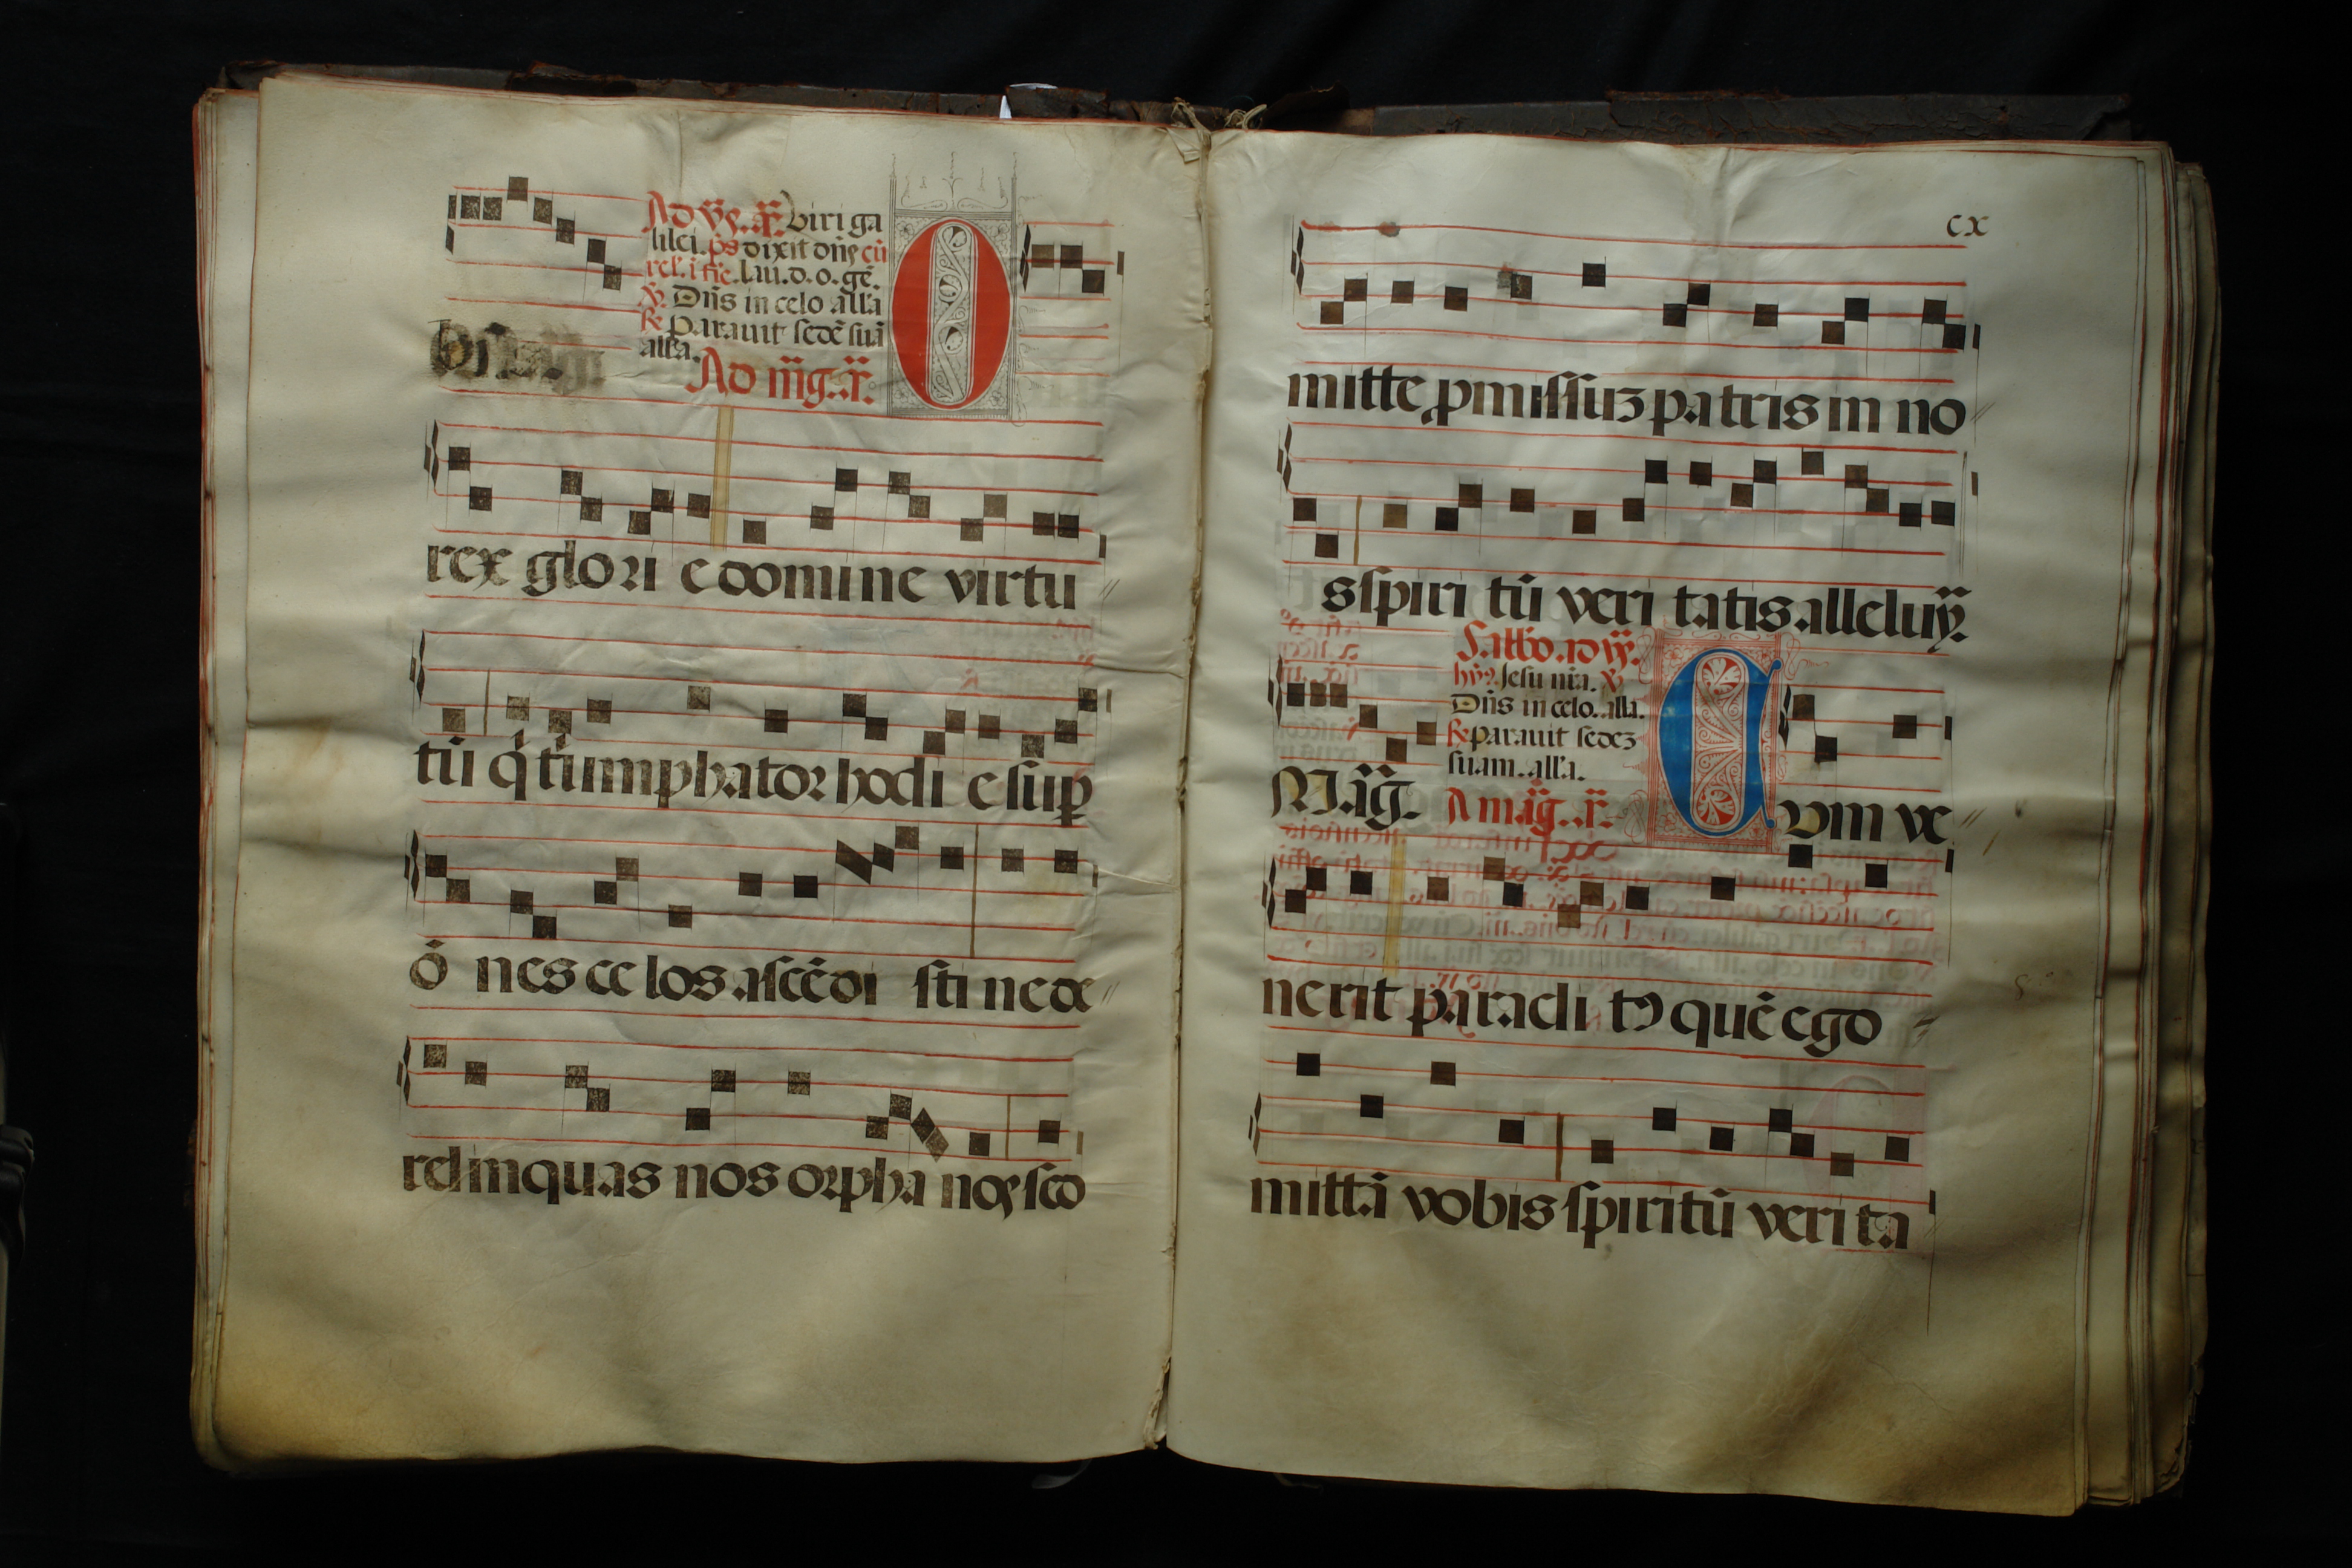 Ad vs̃. añ. Viri ga
lilei. ps̃ dixit dñs cũ
rel. i fie. Lau. d. o. gẽ.
℣. Dñs in celo alla
℟ Parauit sedẽ suã
alla.
Ad mg̃. añ.
O
rex glori e domine virtu
tũ q̇ tiumphator hodi e sup
õ nes ce los ascẽdi sti ne de
relinquas nos orpha nos sed
cx
mitte pmissuz patris in no
s spiri tũ veri tatis alleluy̾.
hy̾. Jesu nr̃a. ℣
Dñs in celo. alla.
℟ parauit sedez
suam. alla.
Mag̃. A mag̃. añ.
C vm ve
nerit paracli tꝰ quẽ ego
mittã vobis spiritũ veri ta